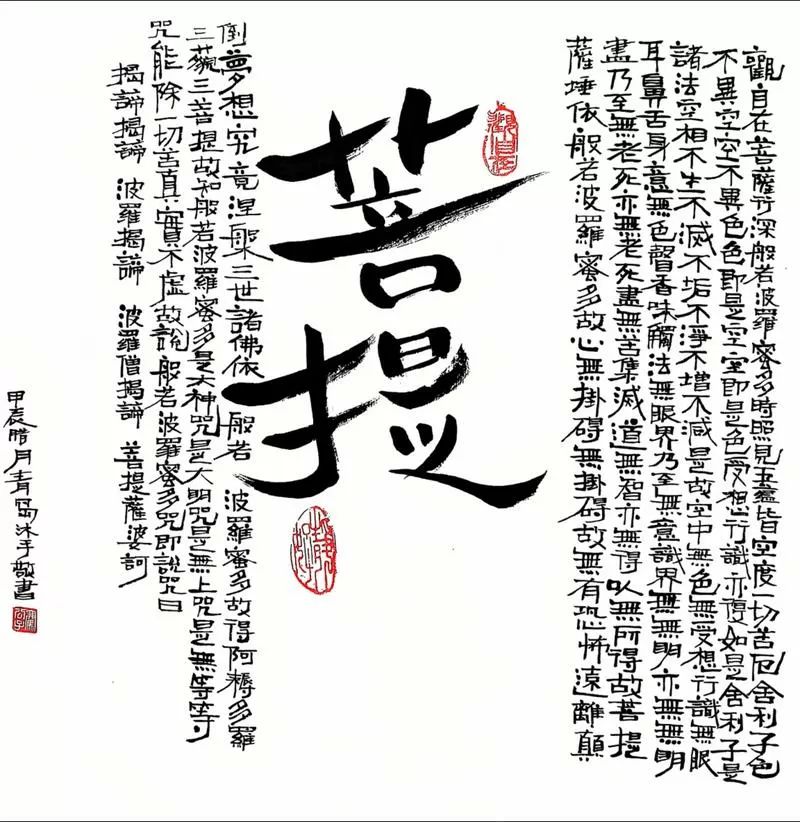 觀自在菩薩行深般若波羅蜜多時照見五蘊皆空度一切苦厄舍利子色
不異空空不異色色即是空空即是色受想行識亦復如是舍利子是
諸法空相不生不滅不垢不淨不增不減是故空中無色無受想行識無眼
耳鼻舌身意無色聲香味觸法無眼界乃至無意識界無無明亦無無明
盡乃至無老死亦無老死盡無苦集滅道無智亦無得以無所得故菩提
薩埵依般若波羅蜜多故心無掛碍無掛碍故無有恐怖遠離顛
觀自在
菩提
倒夢想究竟涅槃三世諸佛依般若波羅蜜多故得阿耨多羅
三藐三菩提故知般若波羅蜜多是大神咒是大明咒是無上咒是無等等
咒能除一切苦真實不虛故說般若波羅蜜多咒即說咒曰
揭諦揭諦 波羅揭諦 波羅僧揭諦 菩提薩婆訶
甲辰腊月青島沐手敬書